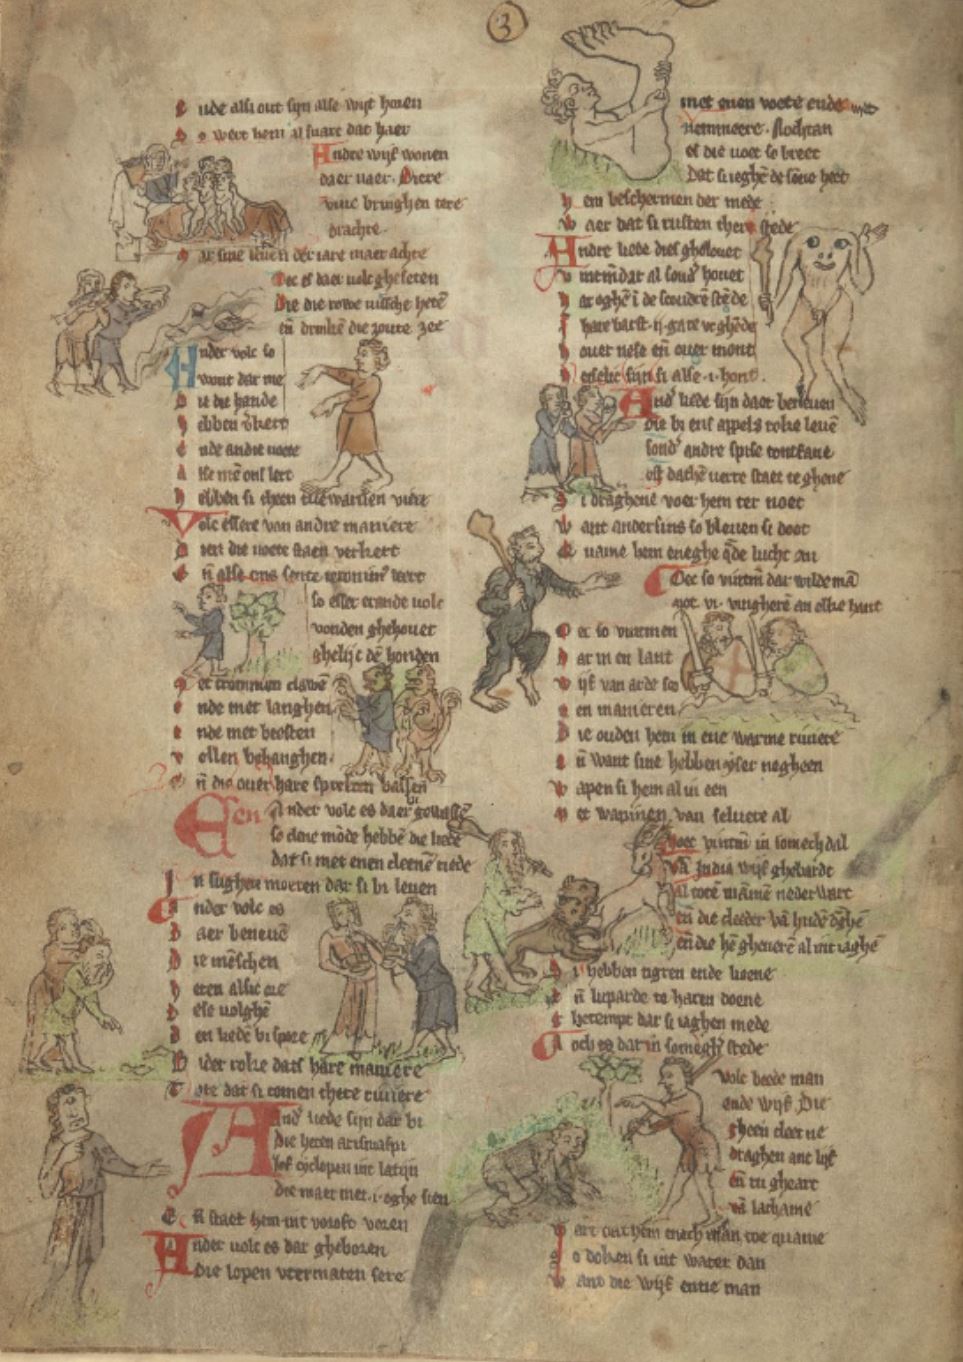 3
Ende alsi out sijn alse wijt horen
So wert hem al suart dat haer
Andre wijf wonen
daer naer. Diere
viue bringhen tere
drachte.
Mar sine leuen der iare maer achte
Oec es daer uolc gheseten
Die die rowe vissche heten
en drinken die zoute zee
Ander volc so
wont dar mede
Die die hande
hebben verkert
Ende andie voete
Alse men ons lert
Hebben si theen twewaruen viere
Volc essere van andre maniere
Dien die voete staen verkert
En alse ons sente ieronimus leert
so esser erande uolc
vonden ghehouet
ghelijc den honden
Met crommen clawen
Ende met langhen
Ende met beesten
vellen behanghen.
En die ouer hare spreken bassen
Een Ander volc es daer gewassen
so clene monde hebben die liede
dat si met enen cleenen riede
In sughen moeten dar si bi leuen
Ander volc es
daer beneuen
Die menschen
heten alsic
ese volghen
den lieden bi
Ider rolke dats hare maniere
Tote dat si comen there riuiere
Andre liede sijn dar bi
Die heten arismaspi
Jof cyclopen int latijn
die maer met .i. oghe sien
En staet hem int voroft voren
Ander volc es dar gheboren
die lopen vtermaten sere
met enen voete ende
nemmeere. Nochtan
es die uoet so breet
Dat si ieghen de sonne heet
Hem beschermen der mede
Waer dat si rusten there stede
Andre liede dies ghelouet
Vintmen dar al sonder houet
Har oghen in de scoudre stede
Jhare barst .ij. gate
ouer nese en ouer mont
Eeselic sijn si alse .i. hont.
Andre liede sijn daer beneuen
die bi ens appels roke leuen
sonder andre spise tontfane
est datsen verre staet te ghane
Si draghene voer hem ter noet
Want andersins so bleuen si doet
Quame hem eneghe quade lucht an
Oec so vintmen dar wilde man
met .vi. vingheren an elke hant
Oec so vintmen
Dar in en lant
Wijf van arde
en manieren
Die ouden hem in ene warme riuiere
En want sine hebben yser negheen
Wapen si hem al in een
Met wapinen van seluere al
Noet vintmen in somech dal
van India wijf ghebardt
al toten mammen nederwart
en die cleder van huden dreghen
en die hen gheneren al mit iaghen
Di hebben tigren ende lioene
En luparde te haren doene
Ghetempt dar si iaghen mede
Noch es dar in someghe stede
Volc beede man
ende wijf Die
gheen cleerne
draghen ant lijf
en ru gheart
van lachame
Mar oat hem enech man toe quame
So doken si int water dan
Want die wijf entie man